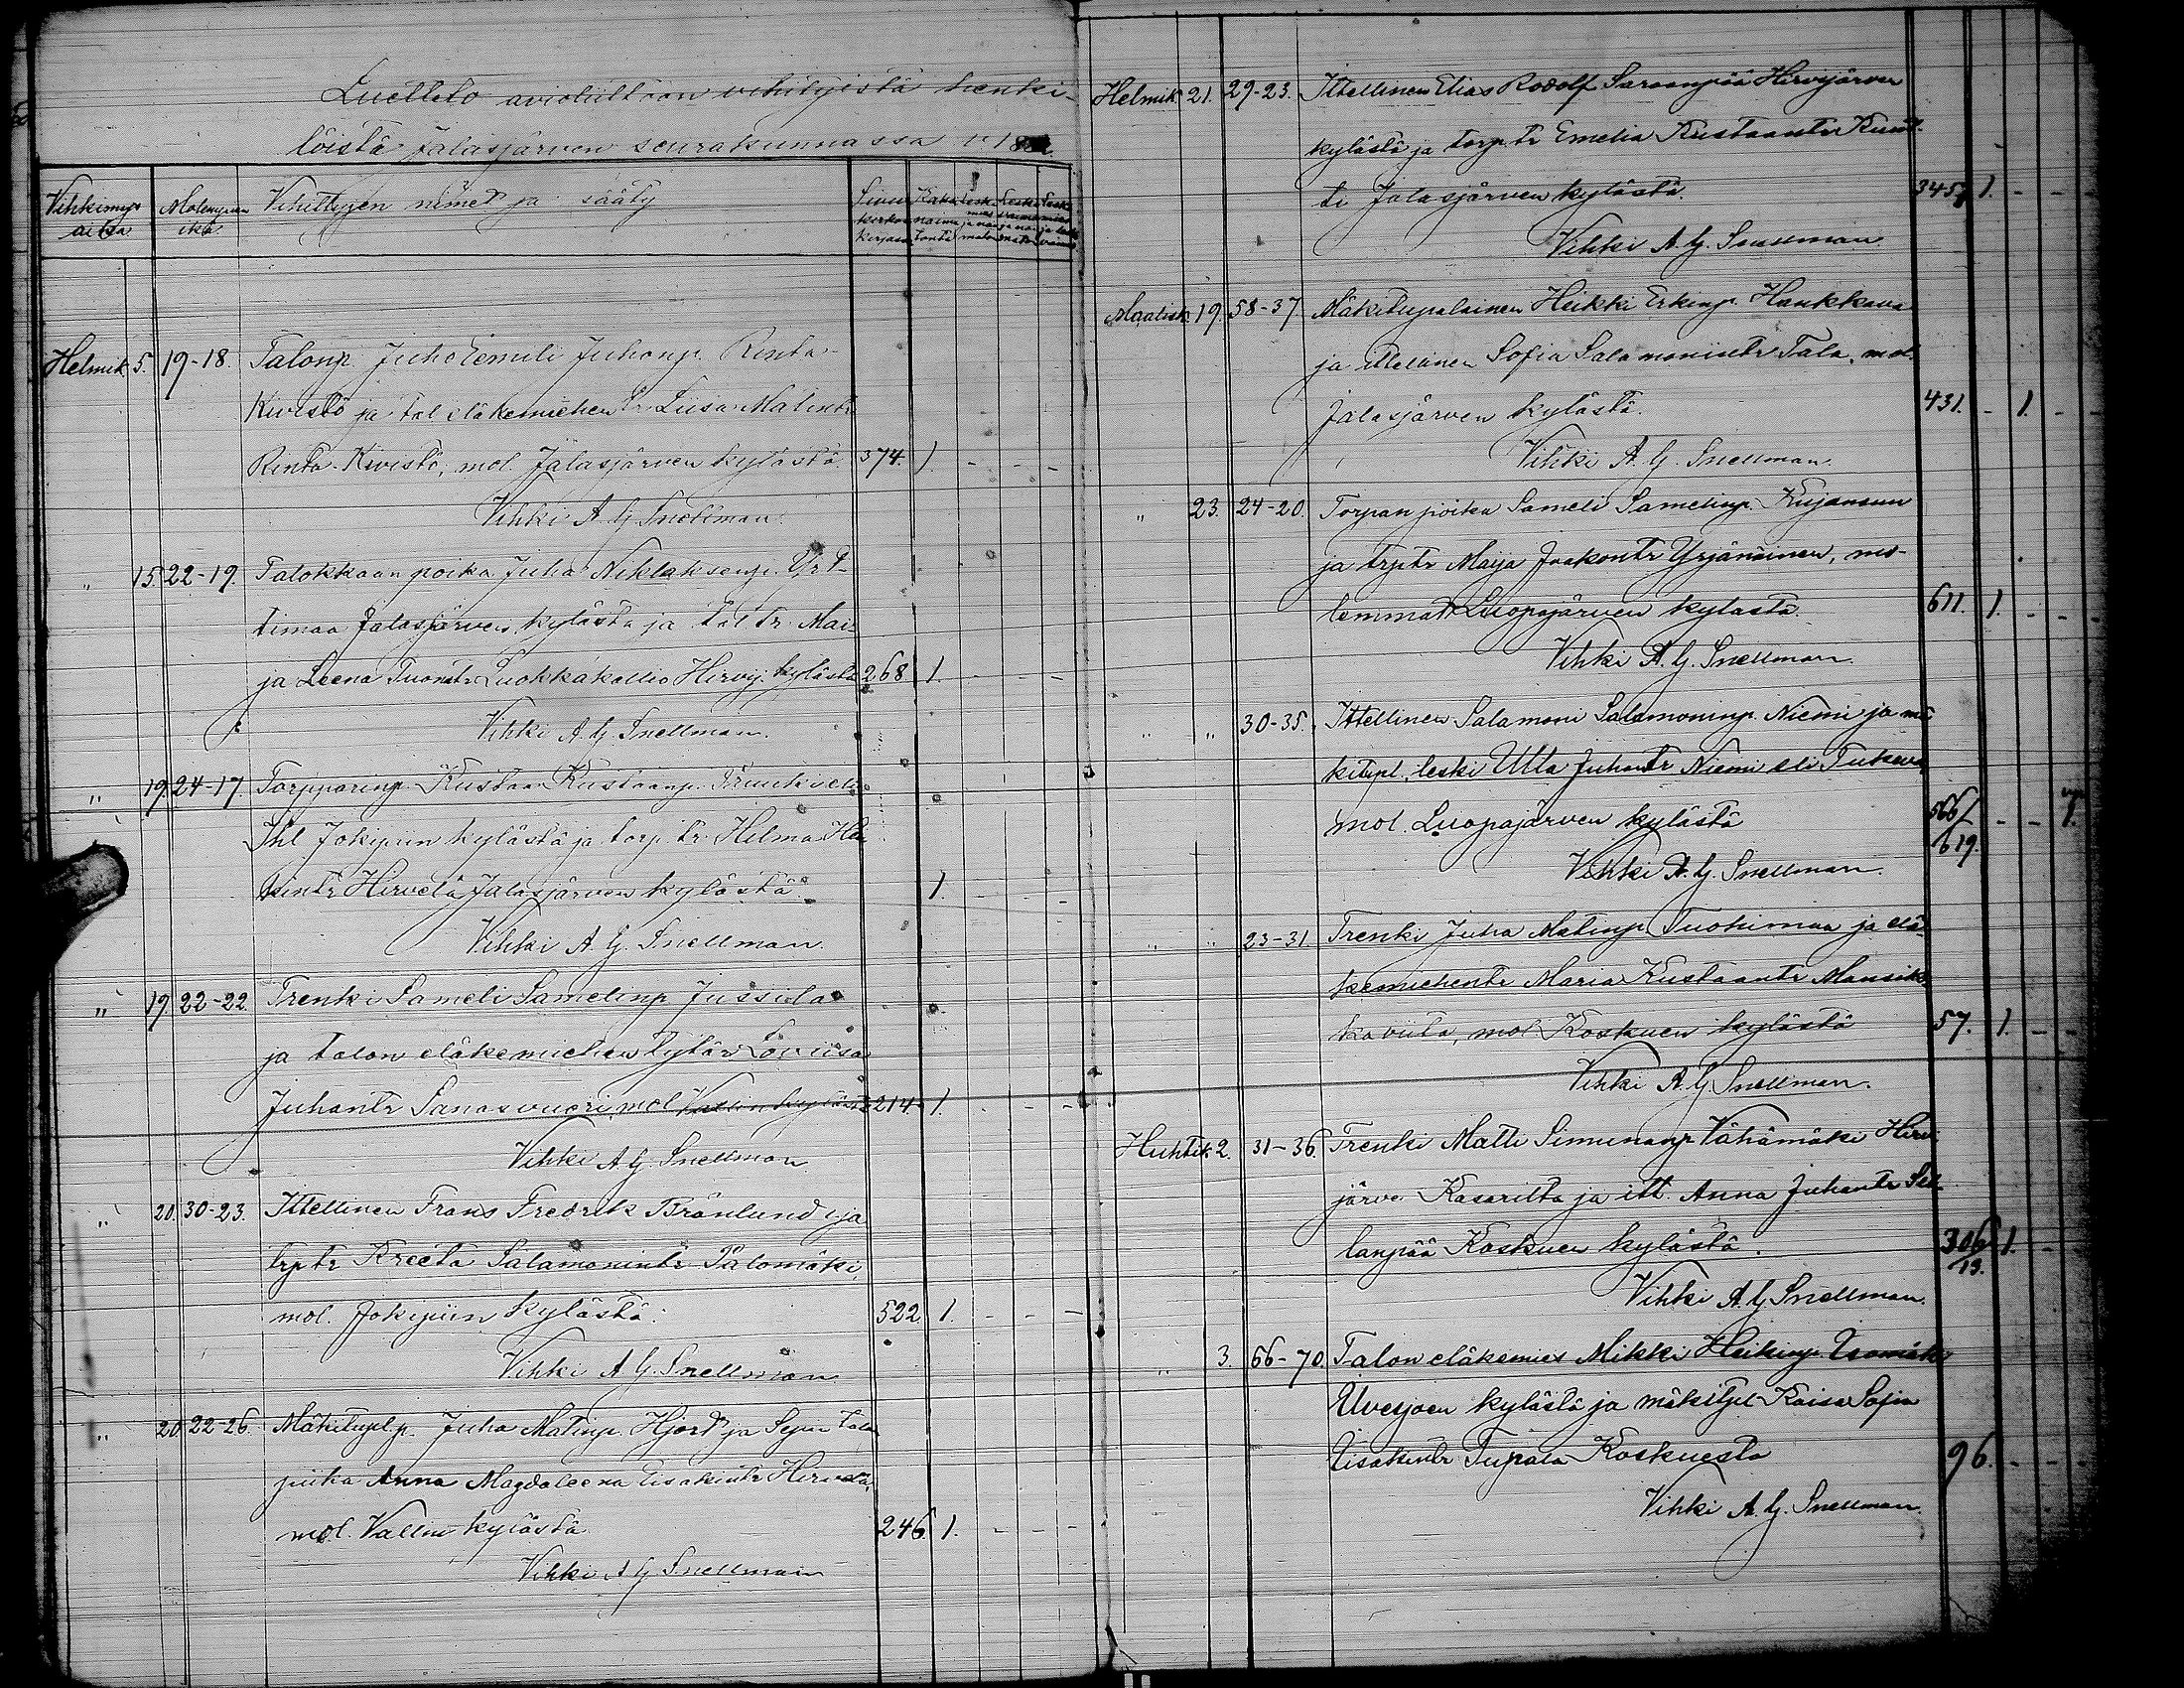 Luettelo avioliittoon vihityistä henki-
löistä Jalasjärven seurakunnassa v. 18
Vihkimys aika
Molempien ikä
Vihittyjen nimet ja sääty
Sivu kirkon kirjassa
Helmik. 5. 19-18. Talonp. Juho Eemili Juhonp. Rinta-
Kivistö ja tal. eläkemiehen tr. Liisa Matintr.
Rinta-Kivistö, mol. Jalasjärven kylästä 374. 1. - - -
Vihki A. G. Snellman.
" 15. 22-19. Talokkaan poika Juha Niklaksenp. Yrt-
timaa Jalasjärven kylästä ja tal. tr. Mai-
ja Leena Tuomtr. Luokkakallio Hirvij. kylästä 268 1. - - -
Vihki A. G. Snellman.
" 19. 24-17. Torpparinp. Kustaa Kustaanp. eli
Jokipiin kylästä ja torp. tr. Helma Hei
kintr. Hirvelä Jalasjärven kylästä 1. - - -
Vihki A. G. Snellman.
" 19. 22-22. Trenki Sameli Samelinp. Jussila
ja talon eläkemiehen tytär Loviisa
Juhontr. Sanasvuori, mol. Vallin kylästä 214. 1. - - -
Vihki A. G. Snellman
" 20. 30-23. Ittellinen Frans Fredrik Brönlund ja
trp.tr. Kreeta Salamonintr. Palomäki,
mol. Jokipiin kylästä. 522 1. - - -
Vihki A. G. Snellman
" 20. 22-26. Mäkitupl.p. Juha Matinp. Hjord ja talon
piika Anna Magdaleena Eisakintr. Hirvelä,
mol. Vallin kylästä 246. 1. - - -
Vihki A. G. Snellman
Helmik. 21. 29-23. Ittellinen Elias Rodolf Saraanpää Hirvijärven
kylästä ja torp. tr. Emelia Kustaantr. Kunt-
ti Jalasjärven kylästä. 345 1. - - -
Vihki A. G. Snellman
Maalisk. 19. 58-37. Mäkitupalainen Heikki Erkinp. Haukkava
ja ittelinen Sofia Salamonintr. Tala, mol.
Jalasjärven kylästä. 431. - 1. - -
Vihki A. G. Snellman.
" 23. 24-20. Torpan poika Sameli Samelinp. Kujansuu
ja trp.tr. Maija Jaakontr. Yrjänäinen, mo-
lemmat Luopajärven kylästä. 611. 1. - - -
Vihki A. G. Snellman.
" " 30-35. Ittellinen Salamoni Salamoninp. Niemi ja mä
kitupl. leski Ulla Juhontr. Niemi eli
mol. Luopajärven kylästä 566/619. - - 1.
Vihki A. G. Snellman.
" " 23-31 Trenki Juha Matinp. Tuohimaa ja elä-
kemiehentr. Maria Kustaantr. Mansik-
kaviita, mol. Koskuen kylästä 57. 1. - -
Vihki A. G. Snellman.
Huhtik. 2. 31-36. Trenki Matti Simunanp. Vähämäki Hirvi
järven Kasarilta ja itt. Anna Juhontr. Sil-
lanpää Koskuen kylästä. 306/13. 1. -
Vihki A. G. Snellman.
" 3. 66-70. Talon eläkemies Mikki Heikinp. Usomäki
Ilvesjoen kylästä ja mäkitpl. Kaisa Sofia
Iisakintr. Tupala Koskuesta 96. - - -
Vihki A. G. Snellman.